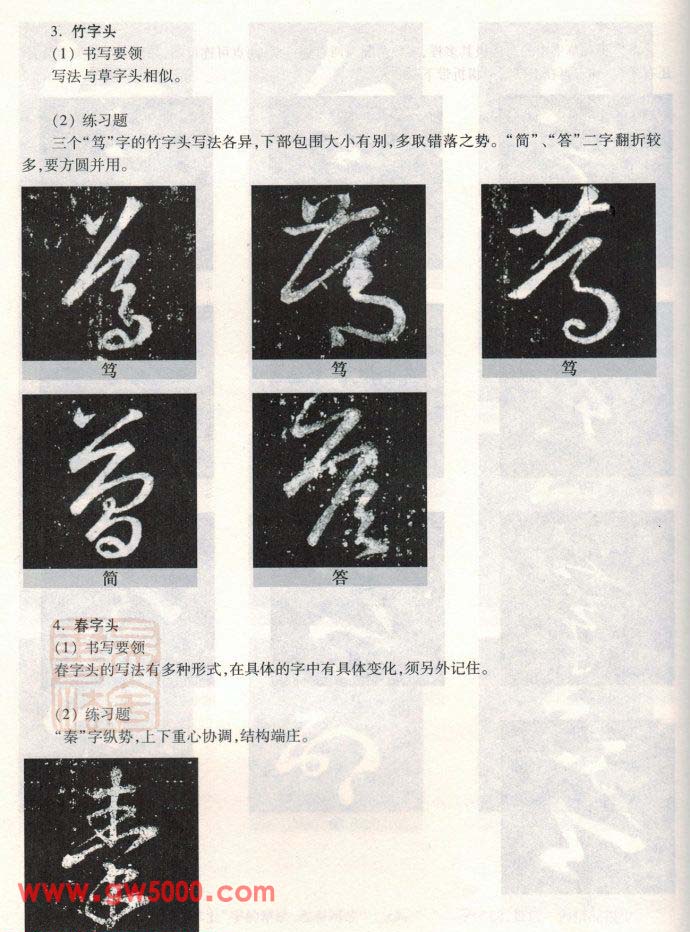 3. 竹字头
(1) 书写要领
写法与草字头相似。
(2) 练习题
三个“笃”字的竹字头写法各异,下部包围大小有别,多取错落之势。“简”、“答”二字翻折较
多,要方圆并用。
笃 笃 笃
简 答
4. 春字头
(1) 书写要领
春字头的写法有多种形式,在具体的字中有具体变化,须另外记住。
(2) 练习题
“秦”字纵势,上下重心协调,结构端庄。
www.gw5000.com